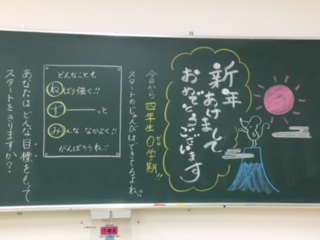 新年
あけまして
おめでとうございます
今日から四年生0学期!!
スタートのじゅんびはできてるよね!!
どんなことも
ねばり強く!!
ず――っと
みんな なかよく!!
がんばろうね!!
あなたはどんな目標をもって
スタートをきりますか?